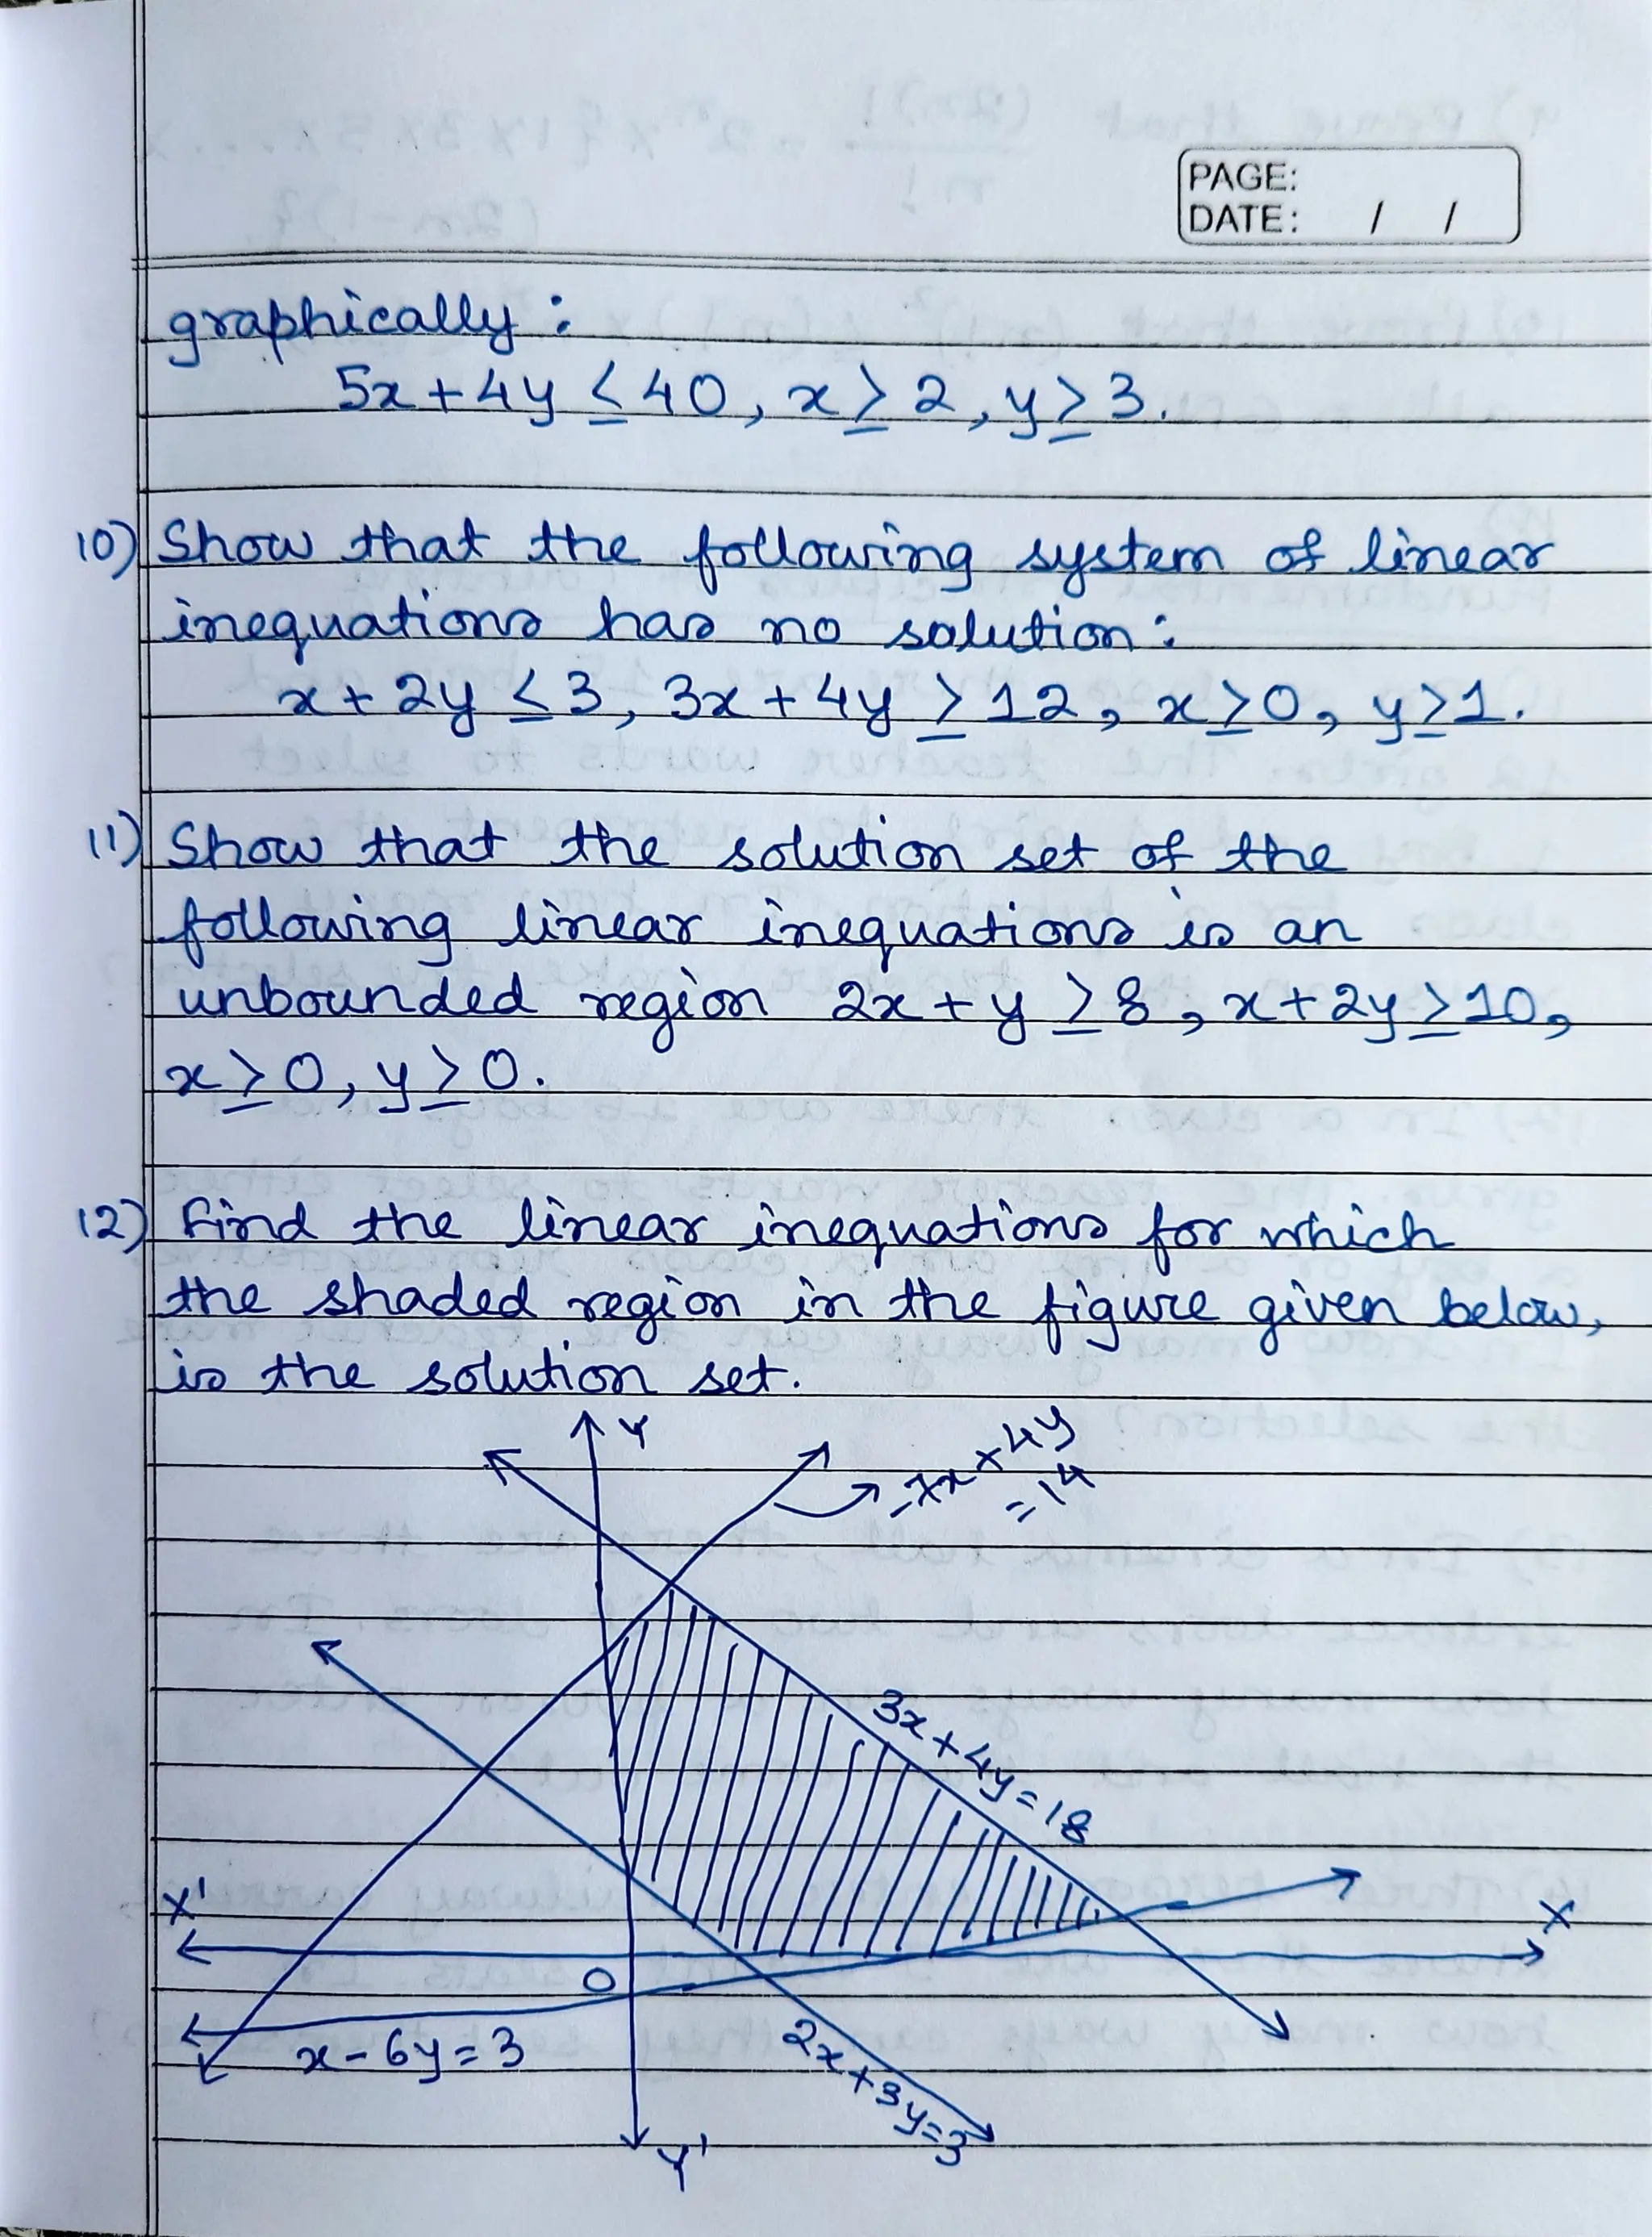 PAGE:
DATE: / /
graphically:
5x + 4y ≤ 40, x ≥ 2, y ≥ 3.
10) Show that the following system of linear
inequations has no solution:
x + 2y ≤ 3, 3x + 4y ≥ 12, x ≥ 0, y ≥ 1.
11) Show that the solution set of the
following linear inequations is an
unbounded region 2x + y ≥ 8, x + 2y ≥ 10,
x ≥ 0, y ≥ 0.
12) Find the linear inequations for which
the shaded region in the figure given below,
is the solution set.
Y
-7x + 4y
= 14
3x + 4y = 18
X'
X
O
x - 6y = 3
2x + 3y = 3
Y'